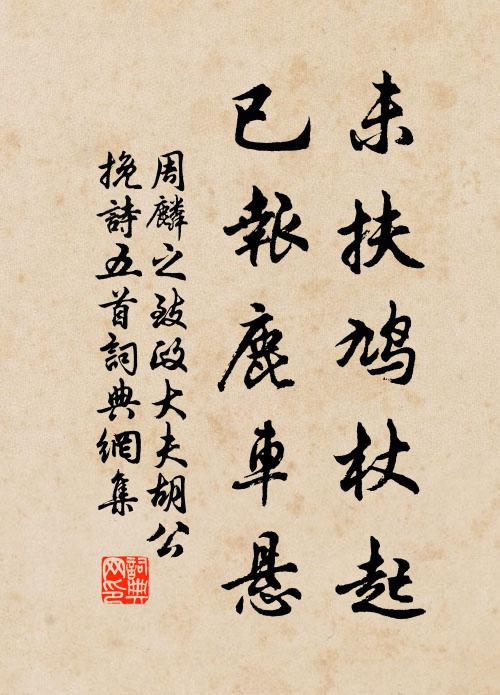 未扶鳩杖起
已報鹿車懸
周麟之致政大夫胡公
挽詩五首詞典網集
詞典網印